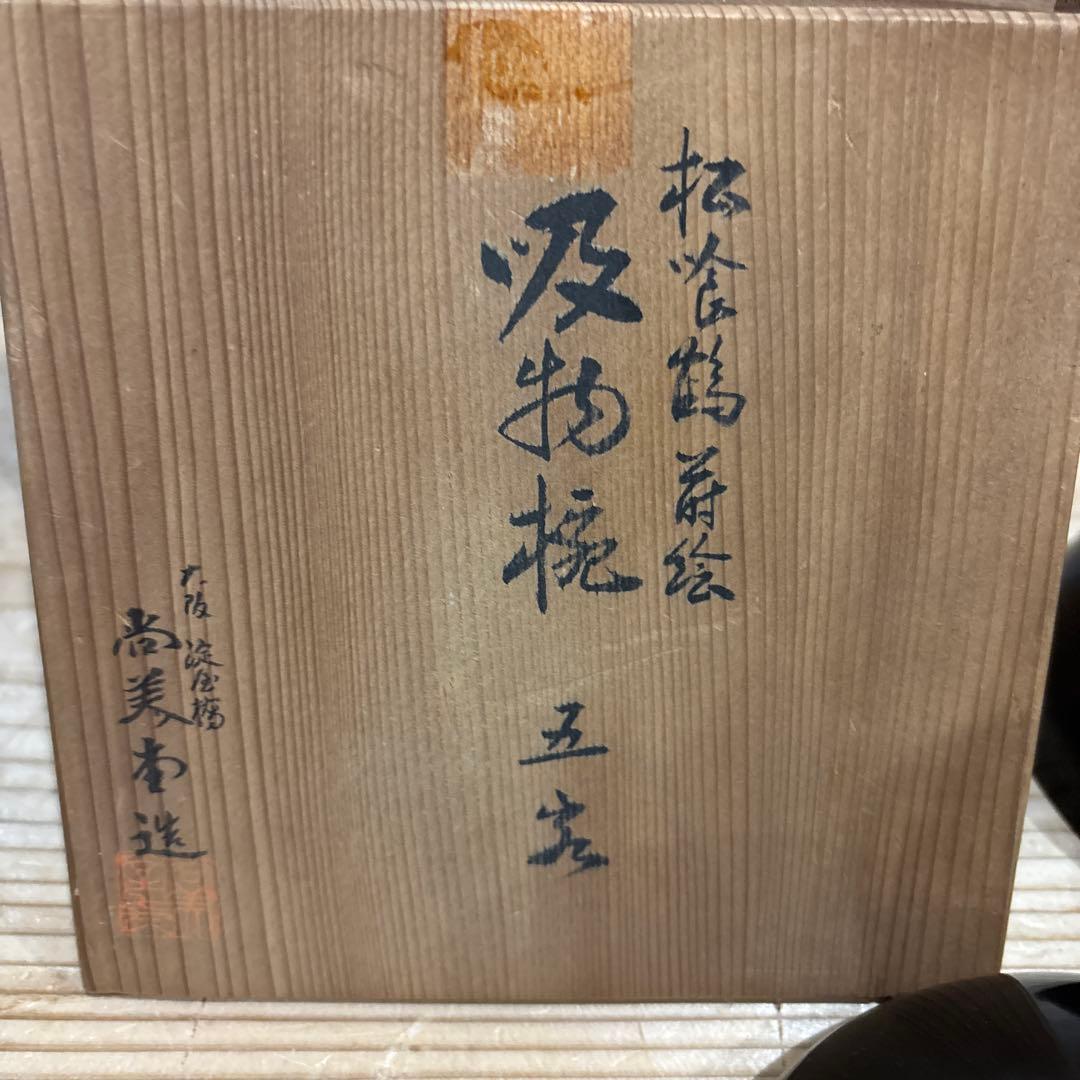 松喰鶴蒔絵
吸物椀 五客
大阪 淀屋橋
尚美堂造